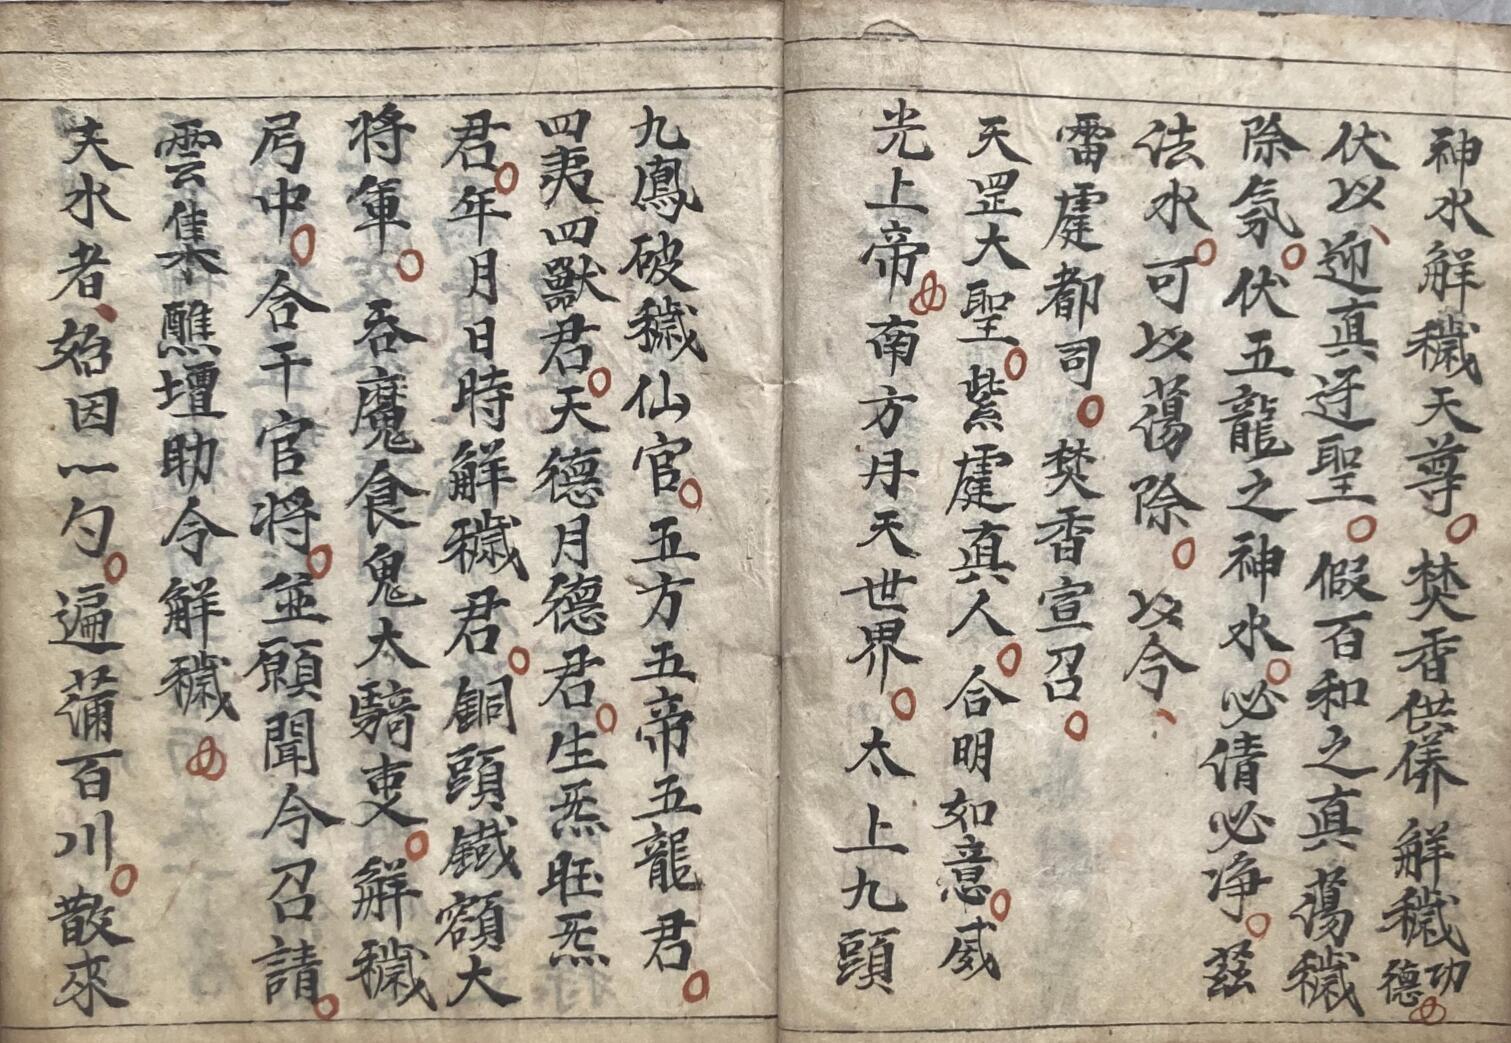 神水解穢天尊焚香供養解穢功德
伏以迎真迓聖假百和之真蕩穢
除氛伏五龍之神水必清必净兹
法水可以蕩除以今
雷霆都司焚香宣召
天罡大聖紫霆真人合明如意威
光上帝南方丹天世界太上九頭
九鳳破穢仙官五方五帝五龍君
四夷四獸君天德月德君生炁旺炁
君年月日時解穢君銅頭鐵額大
將軍吞魔食鬼大騎吏解穢
局中合干官將並願聞今召請
雲集醮壇助令解穢
夫水者始因一勺遍滿百川散來